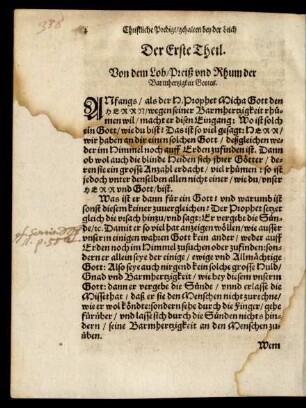 Christliche Predigt / gehalten bey der Leich
Der Erste Theil.
Von dem Lob / Preiß vnd Rhum der
Barmhertzigkeit Gottes.
ANfangs / als der H. Prophet Micha Gott den
HERRN / wegen seiner Barmhertzigkeit rhü-
men wil / macht er disen Eingang: Wo ist solch
ein Gott / wie du bist? Das ist so viel gesagt: HERR /
wir haben an dir einen solchen Gott / deßgleichen we-
der im Himmel noch auff Erden zufinden ist. Dann
ob wol auch die blinde Heiden sich jhrer Götter / de-
ren sie ein grosse Anzahl erdacht / viel rhümen: so ist
jedoch vnter denselben allen nicht einer / wie du / vnser
HERR vnd Gott / bist.
Was ist er dann für ein Gott? vnd warumb ist
sonst diesem keiner zuuergleichen? Der Prophet setzet
gleich die vrsach hinzu / vnd sagt: Er vergebe die Sün-
de / ec. Damit er so viel hat anzeigen wöllen / wie ausser
vnserm einigen wahen Gott kein ander / weder auff
Erden noch im Himmel zusuchen oder zufinden: son-
dern er allein seye der einige / ewige vnd Allmächtige
Gott: Also seye auch nirgend kein solche grosse Huld /
Gnad vnd Barmhertzigkeit / wie bey disem vnserm
Gott: dann er vergebe die Sünde / vnnd erlasse die
Missethat / daß er sie den Menschen nicht zurechne /
wie er wol köndte: sondern sehe durch die Finger / gehe
fürüber / vnd lasse sich durch die Sünden nicht hin-
dern / seine Barmhertzigkeit an den Menschen zu-
üben.
Wem